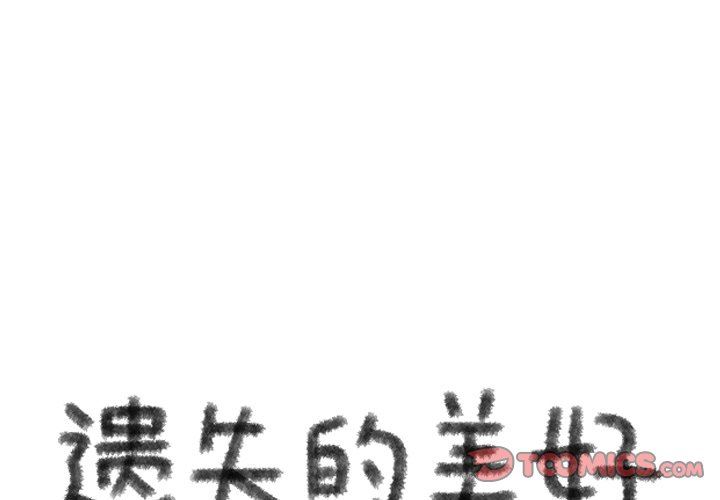 遗失的美好
TCOMICS.COM